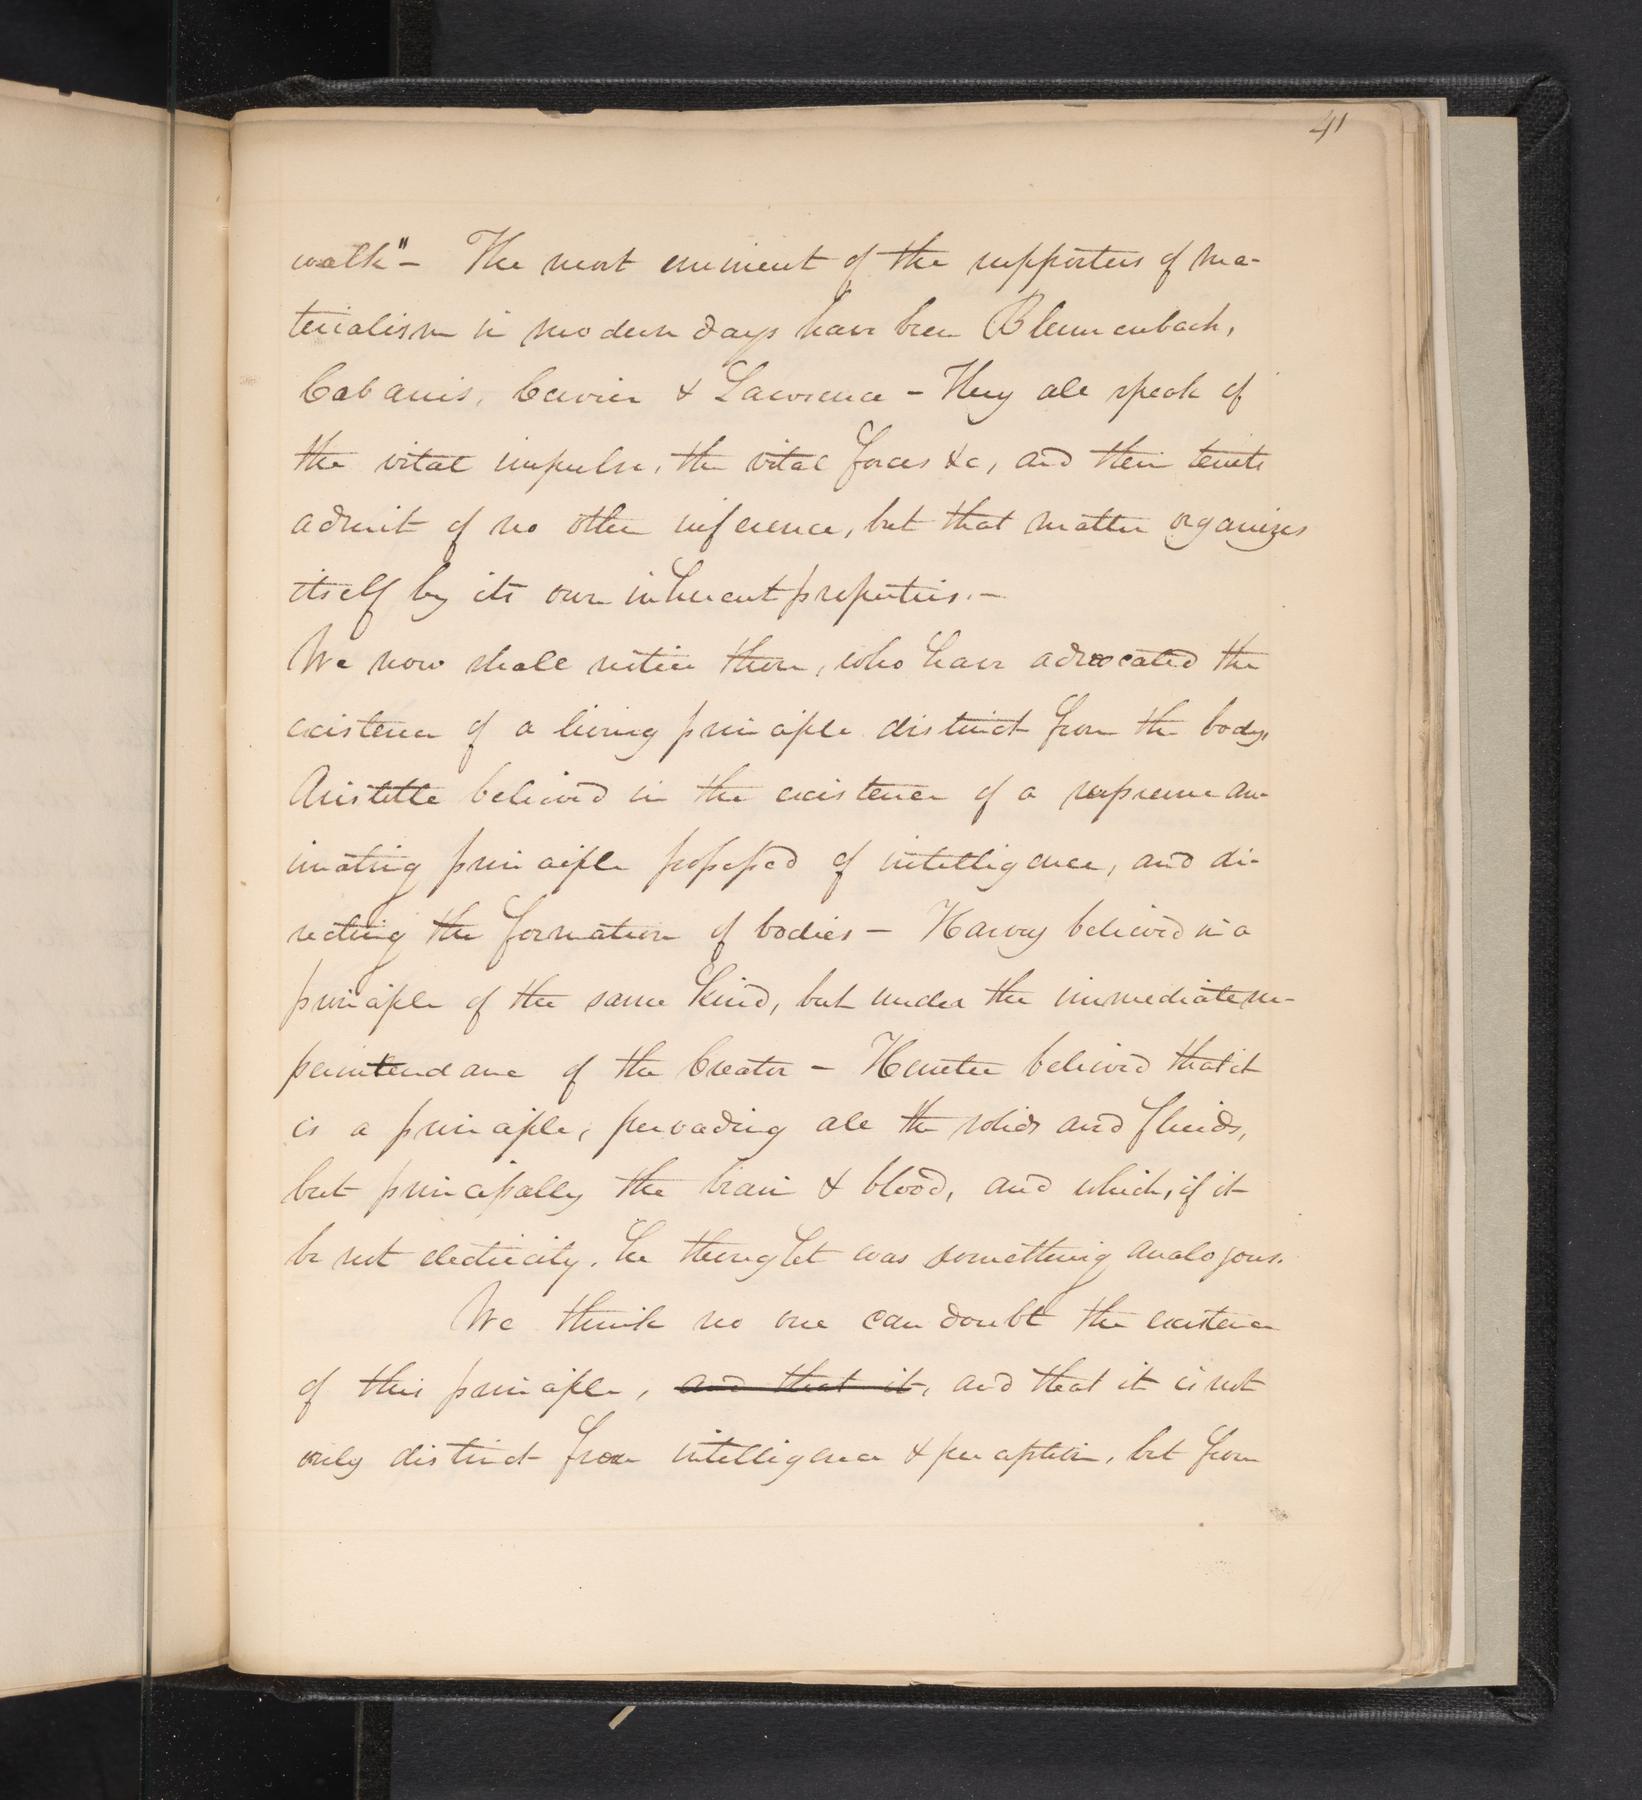 41
walk" – The most eminent of the supporters of ma-
terialism in modern days have been Blumenbach,
Cabanis, Cuvier & Lawrence – They all speak of
the vital impulse, the vital forces &c, and their tenets
admit of no other inference, but that matter organizes
itself by its own inherent properties. –
We now shall notice those, who have advocated the
existence of a living principle distinct from the body.
Aristotle believed in the existence of a supreme an-
imating principle possessed of intelligence, and di-
recting the formation of bodies – Harvey believed in a
principle of the same kind, but under the immediate su-
perintendance of the Creator – Hunter believed that it
is a principle, pervading all the solids and fluids,
but principally the brain & blood, and which, if it
be not electricity, he thought was something analogous.
We think no one can doubt the existence
of this principle, and that it, and that it is not
only distinct from intelligence & perception, but from